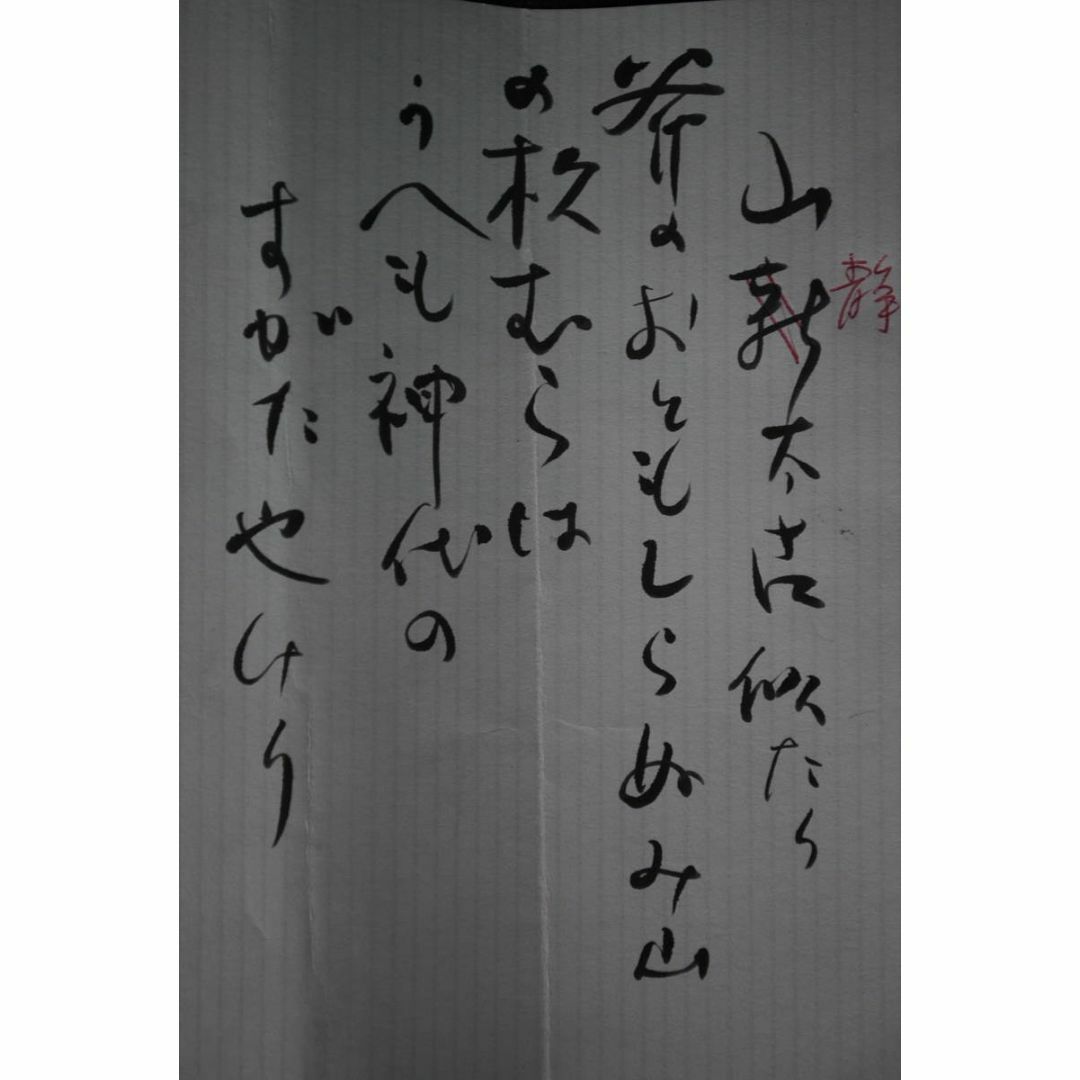 静
山新太古似たり
斧のおともしらぬみ山
の杦むらは
うへも神代の
すがたやけり